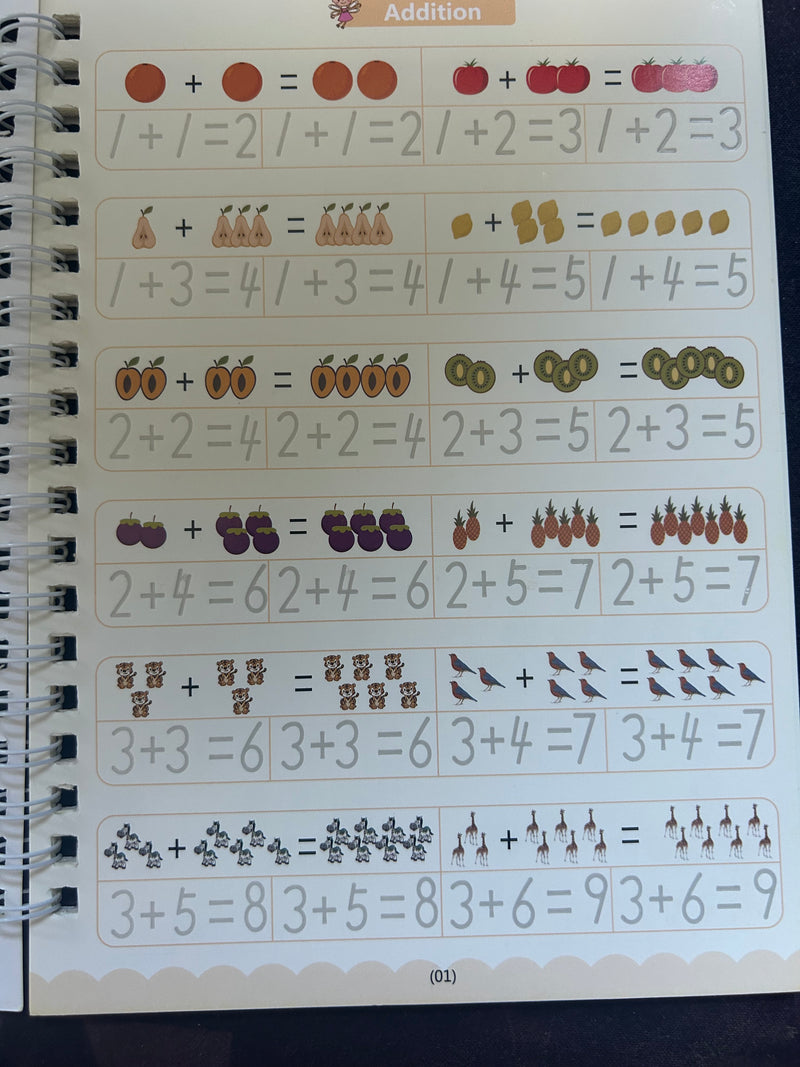 Addition
+ = + =
1+1=2 1+1=2 1+2=3 1+2=3
+ = + =
1+3=4 1+3=4 1+4=5 1+4=5
+ = + =
2+2=4 2+2=4 2+3=5 2+3=5
+ = + =
2+4=6 2+4=6 2+5=7 2+5=7
+ = + =
3+3=6 3+3=6 3+4=7 3+4=7
+ = + =
3+5=8 3+5=8 3+6=9 3+6=9
(01)